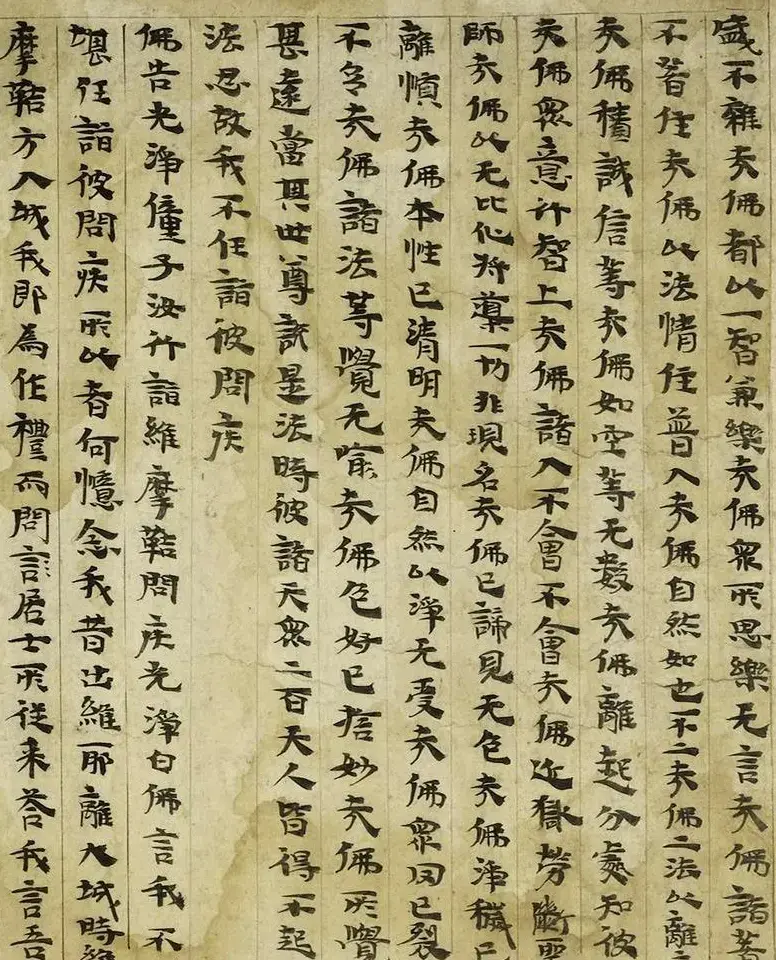 盛不雜夫佛都以一智兼樂夫佛眾所思樂无言夫佛諸著
不著住夫佛以法情住普入夫佛自然如也不二夫佛二法以離
夫佛積誠信等夫佛如空等无數夫佛離起分處知彼
夫佛眾意行智上夫佛諸入不會不會夫佛近獄勞斷
師夫佛以无比化將導一切非現名夫佛已諦見无色夫佛淨穢已
離順夫佛本性已清明夫佛自然以淨无受夫佛眾网已裂
不念夫佛諸法等覺无喻夫佛色好已捨妙夫佛所覺
甚遠當其世尊說是法時彼諸天眾二百天人皆得不起
法忍故我不任詣彼問疾
佛告光淨僮子汝行詣維摩詰問疾光淨白佛言我不
堪任詣彼問疾所以者何憶念我昔出維耶離大城時維
摩詰方入城我即為作禮而問言居士所從来荅我言吾